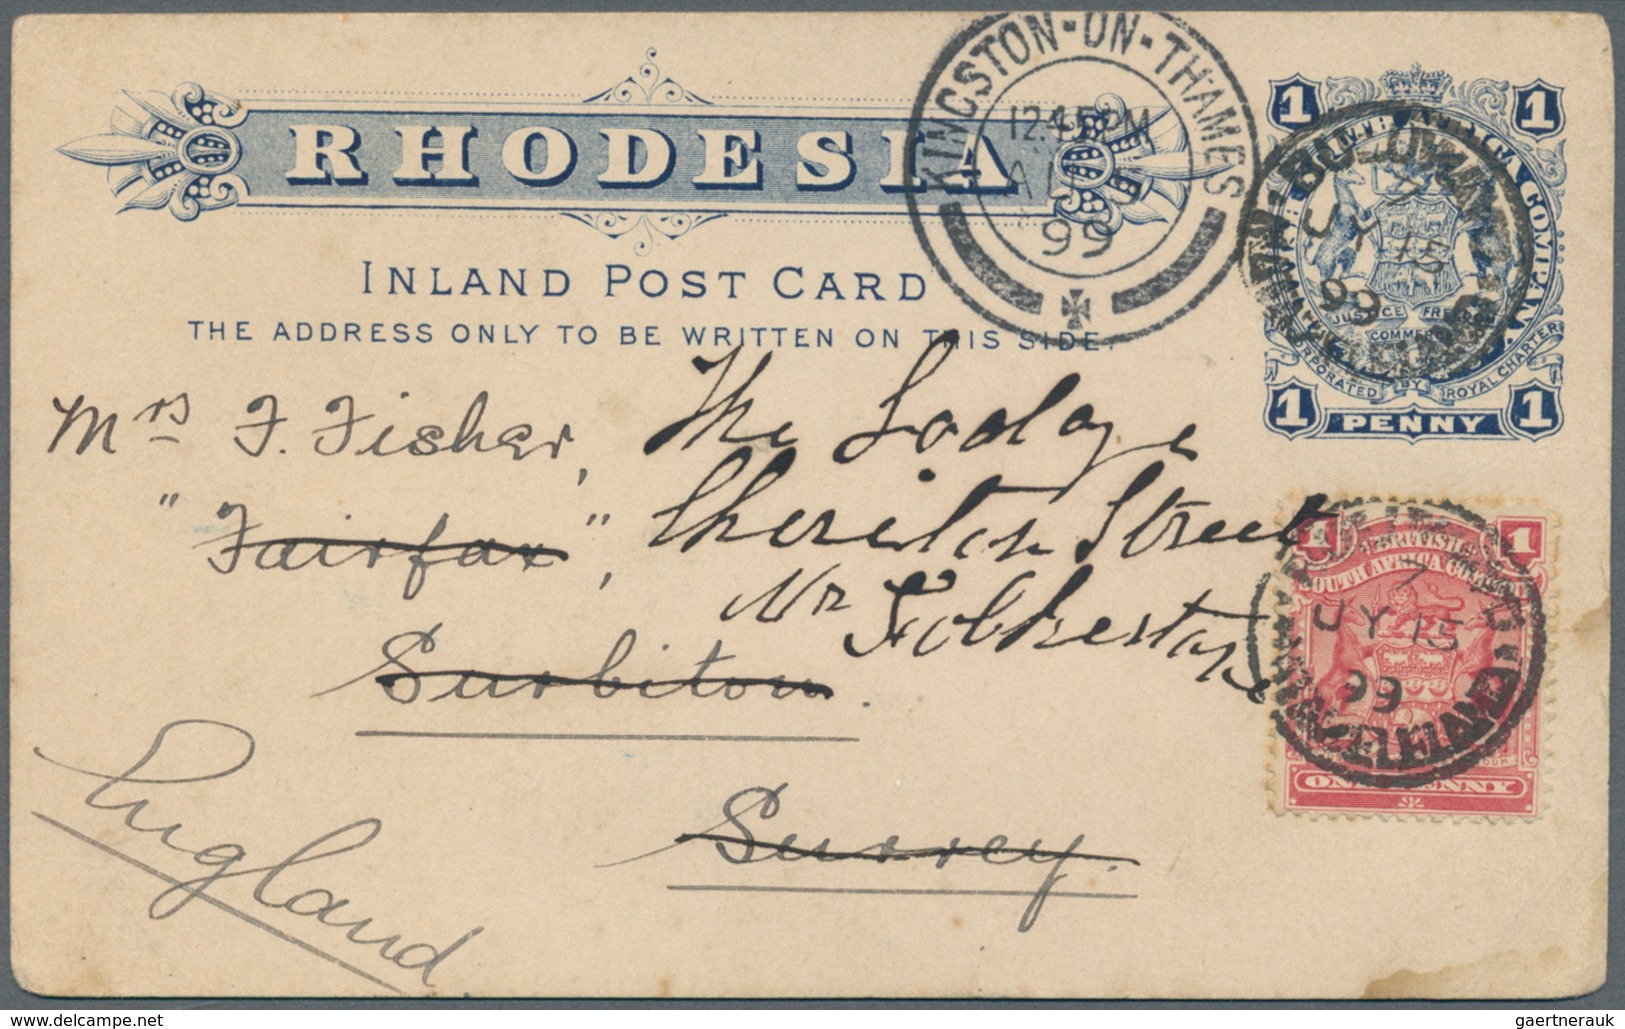 RHODESIA
INLAND POST CARD
THE ADDRESS ONLY TO BE WRITTEN ON THIS SIDE.
KINGSTON-ON-THAMES
12.45PM
AU 5
99
1 1
BULAWAYO
7
JY 15
99
COMPANY.
JUSTICE FREEDOM
COMMERCE
INCORPORATED BY ROYAL CHARTER
1 PENNY 1
Mrs F. Fisher,
The Lodge
"Fairfax",
Cheriton Street
Nr Folkestone
Surbiton
Surrey.
England
1 1
BRITISH
SOUTH AFRICA COMPANY
7
JY 15
99
ONE PENNY
delcampe.net
gaertnerauk